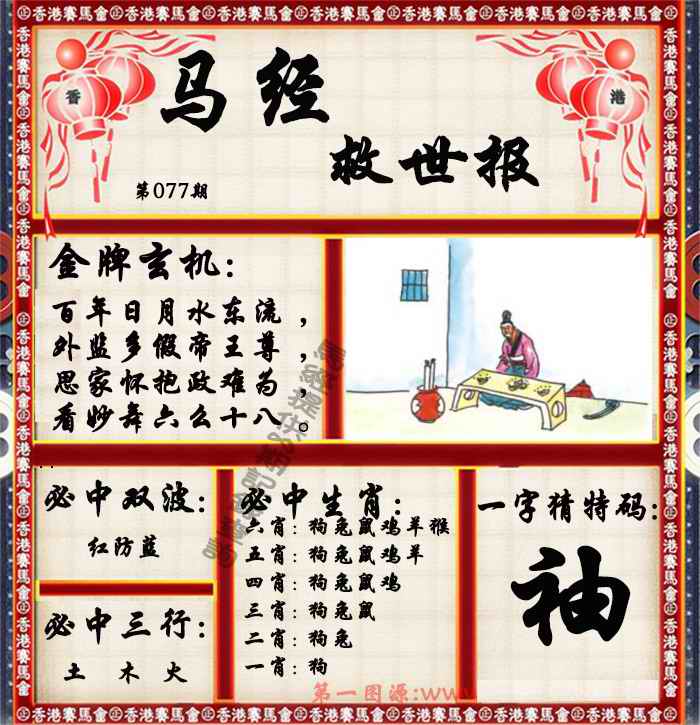 香港賽馬會 香港賽馬會 香港賽馬會 香港賽馬會 香港賽馬會 香港賽馬會
香
港
马经
救世报
第077期
金牌玄机：
百年日月水东流，
外监多假帝王尊，
思家怀抱政难为，
看妙舞六么十八。
必中双波：
红防蓝
必中三行：
土 木 火
必中生肖：
六肖：狗兔鼠鸡羊猴
五肖：狗兔鼠鸡羊
四肖：狗兔鼠鸡
三肖：狗兔鼠
二肖：狗兔
一肖：狗
一字猜特码：
袖
第一图源:ww